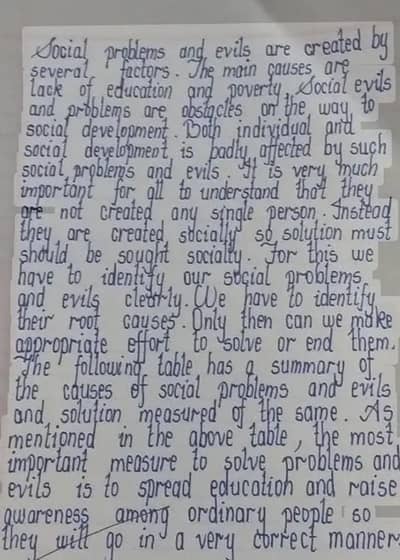 Social problems and evils are created by
several factors. The main causes are
lack of education and poverty. Social evils
and problems are obstacles on the way to
social development. Both individual and
social development is badly affected by such
social problems and evils. It is very much
important for all to understand that they
are not created any single person. Instead
they are created socially so solution must
should be sought socially. For this we
have to identify our social problems
and evils clearly. We have to identify
their root causes. Only then can we make
appropriate effort to solve or end them.
The following table has a summary of
the causes of social problems and evils
and solution measured of the same. As
mentioned in the above table, the most
important measure to solve problems and
evils is to spread education and raise
awareness among ordinary people so
they will go in a very correct manner